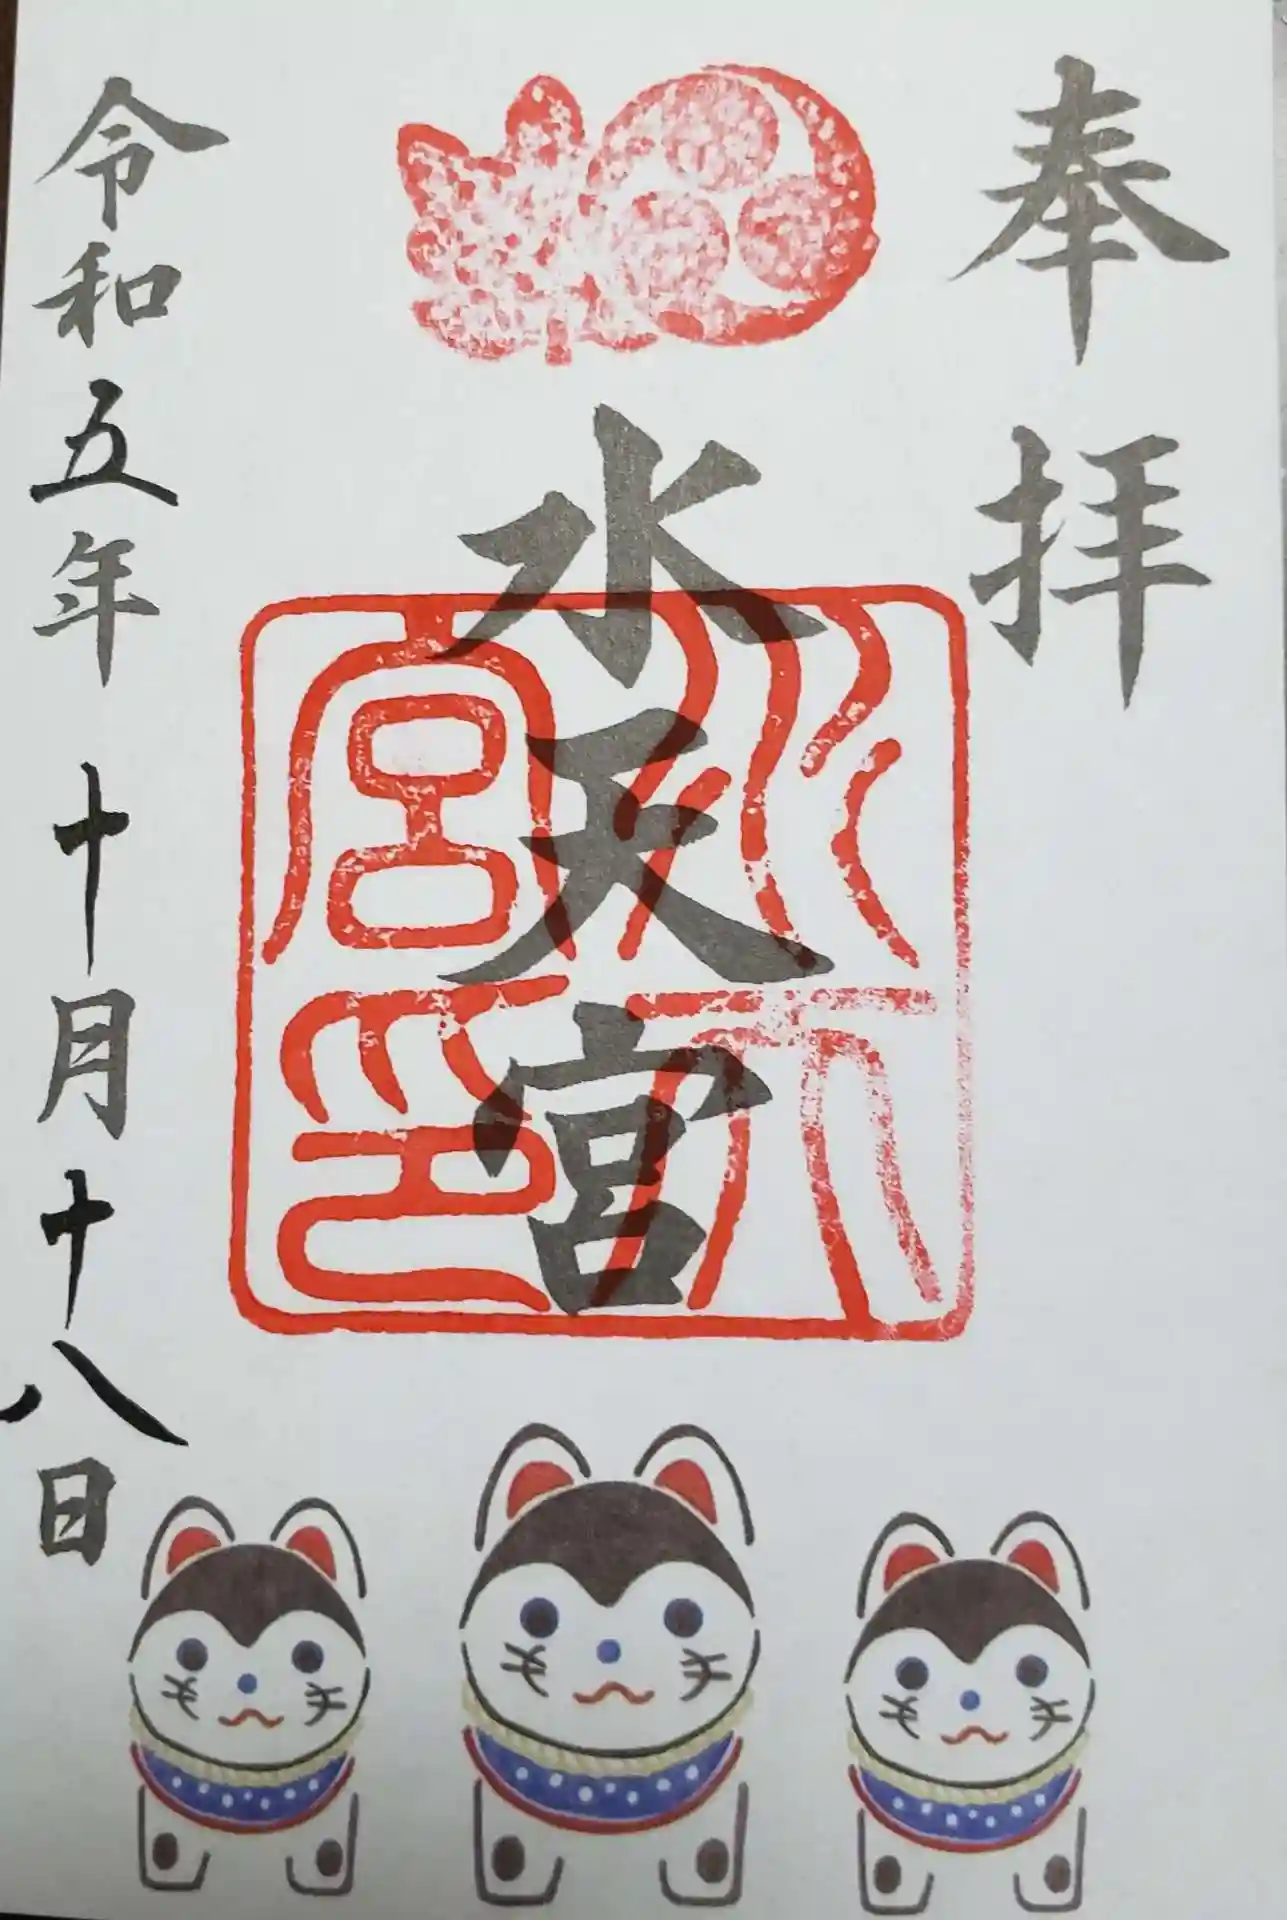 奉拝
水天宮
水天宮印
令和五年十月十八日